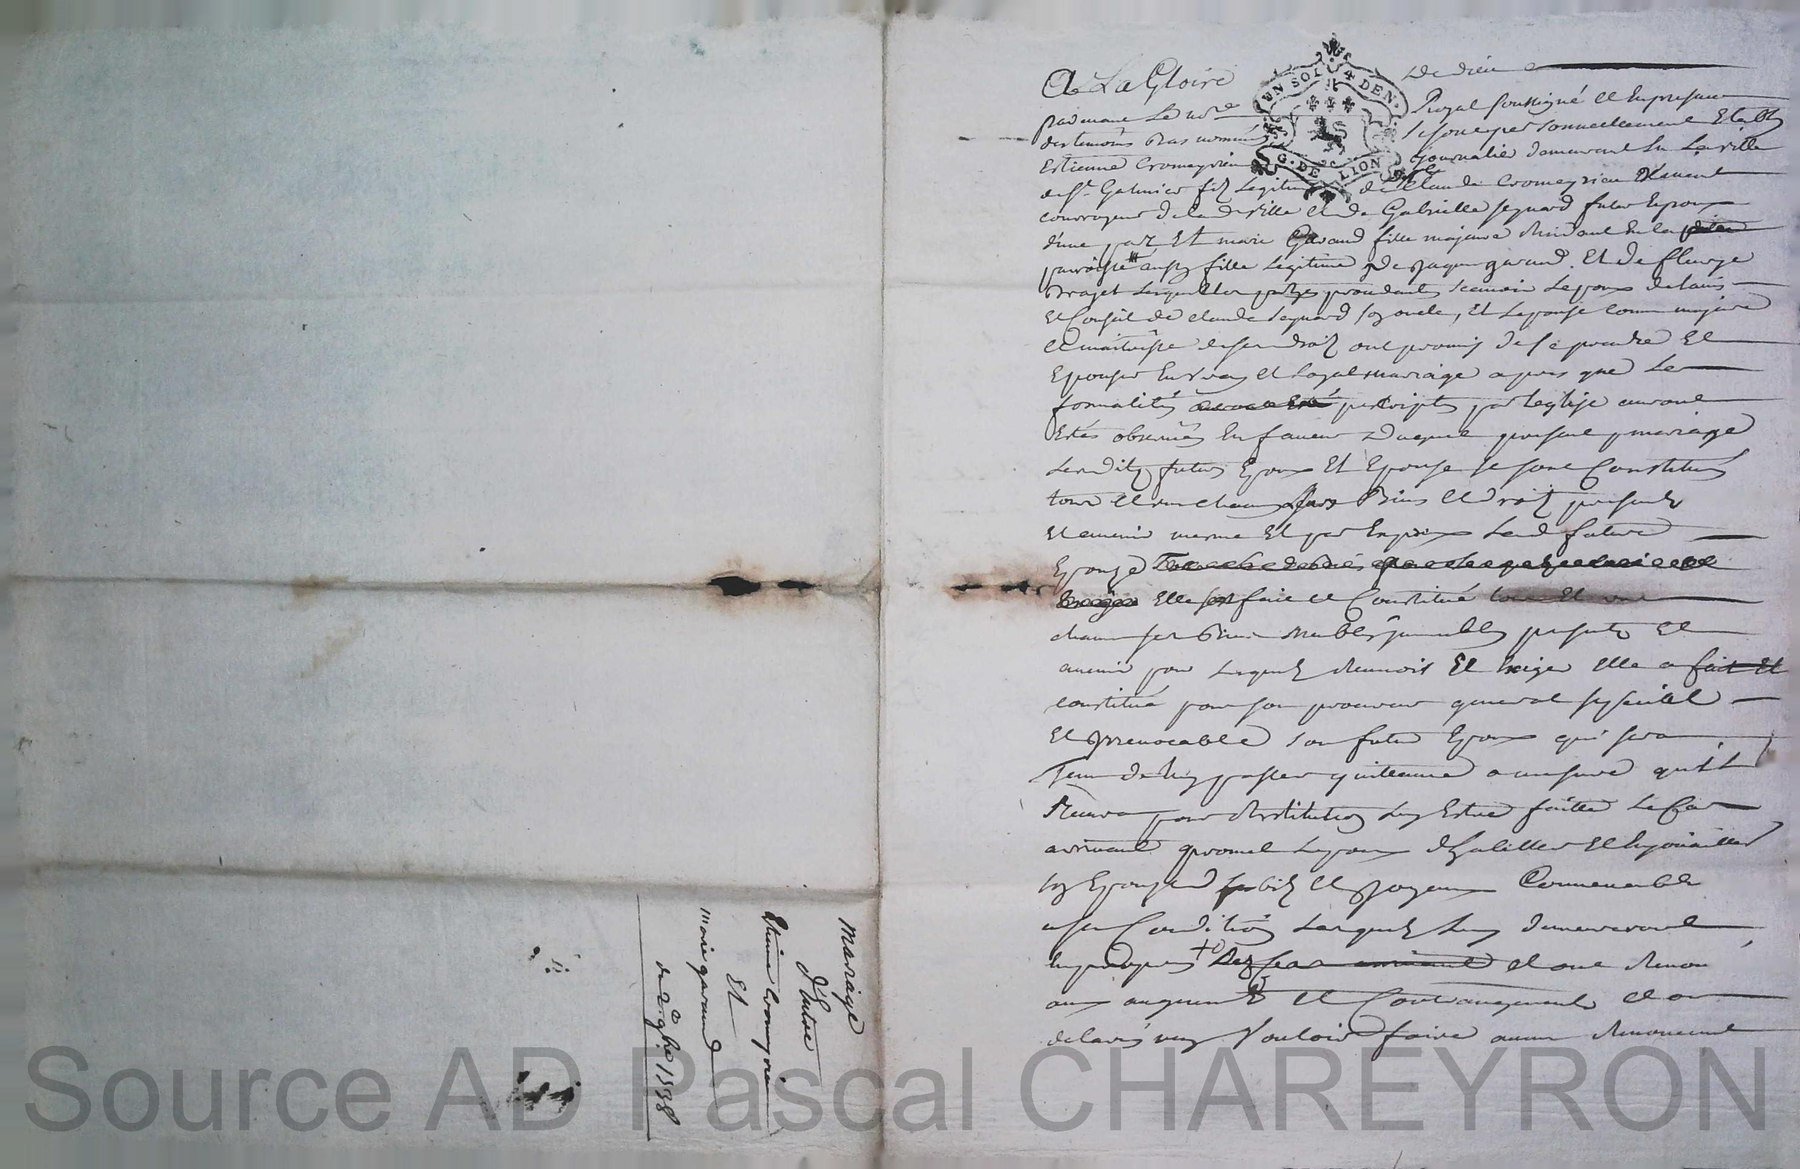 A La Gloire de dieu
UN SOL 4 DEN.
G. DE LION
pardevant Le no.re Royal soussigné et En presence
des temoins Bas nommés se sont personnellement Etablis
Estienne Cromeyrieu journalie demeurant En La ville
de St. Galmier fils Legitime de Claude Cromeyrieu vivant
courroyeur de lad. ville et de Gabrielle seguard futur Epoux
d'une part Et marie Garand fille majeure residant En la
parroisse fille Legitime de Jaque garand Et de fleurye
Lesquelles parties procedants scavoir Lepoux de lavis
Et Conseil de claude seguard son oncle, Et Lepouse comme majeure
et maitresse de ses droits ont promis de se prendre Et
Epouser En vray et loyal mariage apres que Les
formalités prescriptes par leglise auront
Estés observées En faveur Duquel present mariage
Lesdits futurs Epoux Et Epouse se sont Constitués
tous et un chacun Leurs Biens et droits presents
Et avenir mesme Et par Exprès Lad. future
Epouse
Elle sest faite et Constitué tous Et un
chacun ses Biens meubles immeubles presents Et
avenir pour Lesquels recevoir Et Exiger Elle a fait Et
constitué pour son procureur general special
Et Irrevocable son futur Epoux qui sera
Tenu de luy passer quittance a mesure qu'il
Recevra pour restitution Luy Estre faitte Le Cas
arrivant promet Lepoux d'habiller Et Enjoüailler
son Epouse d'habits et Joyaux Convenables
a sa Condition Lesquels Luy demeureront
En propres et ont renoncé
aux augments Et Contraugments et ont
declarés ney Vouloir faire aucun
mariage
d'Entre
Etienne Cromeyrieu
Et
marie garand
du 2e 9bre 1738
Source AD Pascal CHAREYRON